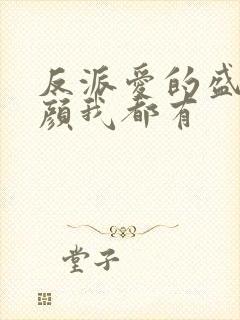 反派爱的盛
颜我都有
堂子